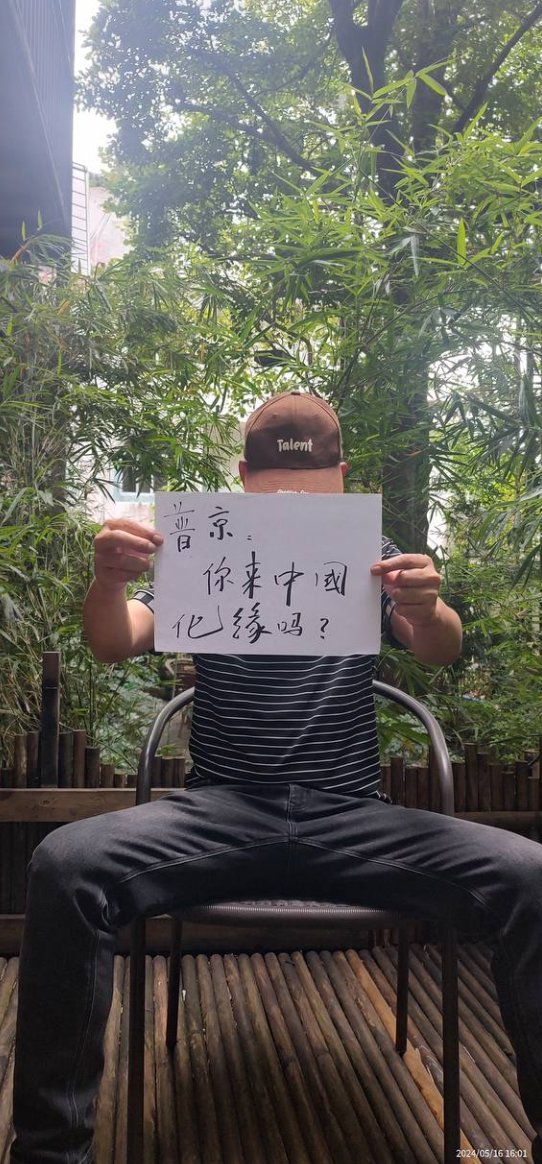 Talent
普京:
你来中國
化緣吗?
2024/05/16 16:01